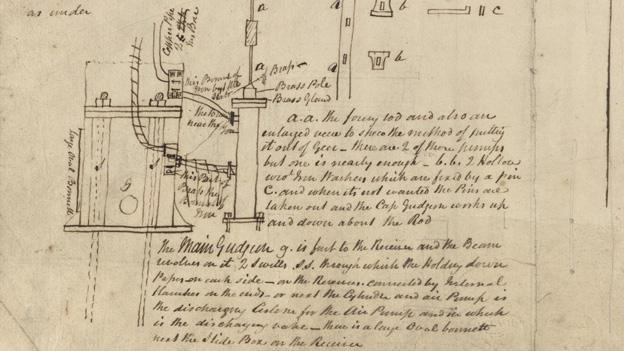 as under
Copper Pipe
2 6
Iron Bar
a
b
c
a
a
b
this Bonnet of
Iron but the
Brass
Brass Pole
Brass Gland
the
near the
Large Oval Bonnett
g
this Part
Brass the
Bonnet of
Iron
a.a. the forcing rod and also an
enlarged view to shew the method of putting
it out of Gear – there are 2 of these pumps
but one is nearly enough – b.b. 2 Hollow
wrot Iron Washers which are fix'd by a pin
C. and when its not wanted the Pins are
taken out and the Cap Gudgeon works up
and down about the Rod
The Main Gudgeon g. is fast to the Receiver and the Beam
revolves on it 2 S.S. through which the Holding down
on each side – on the Receiver connected by Internal
flanches on the ends or next the Cylinder and air Pump is
the discharging Cistern for the Air Pump and in which
is the discharging valve – there is a large Oval bonnett
next the Slide Box on the Receiver